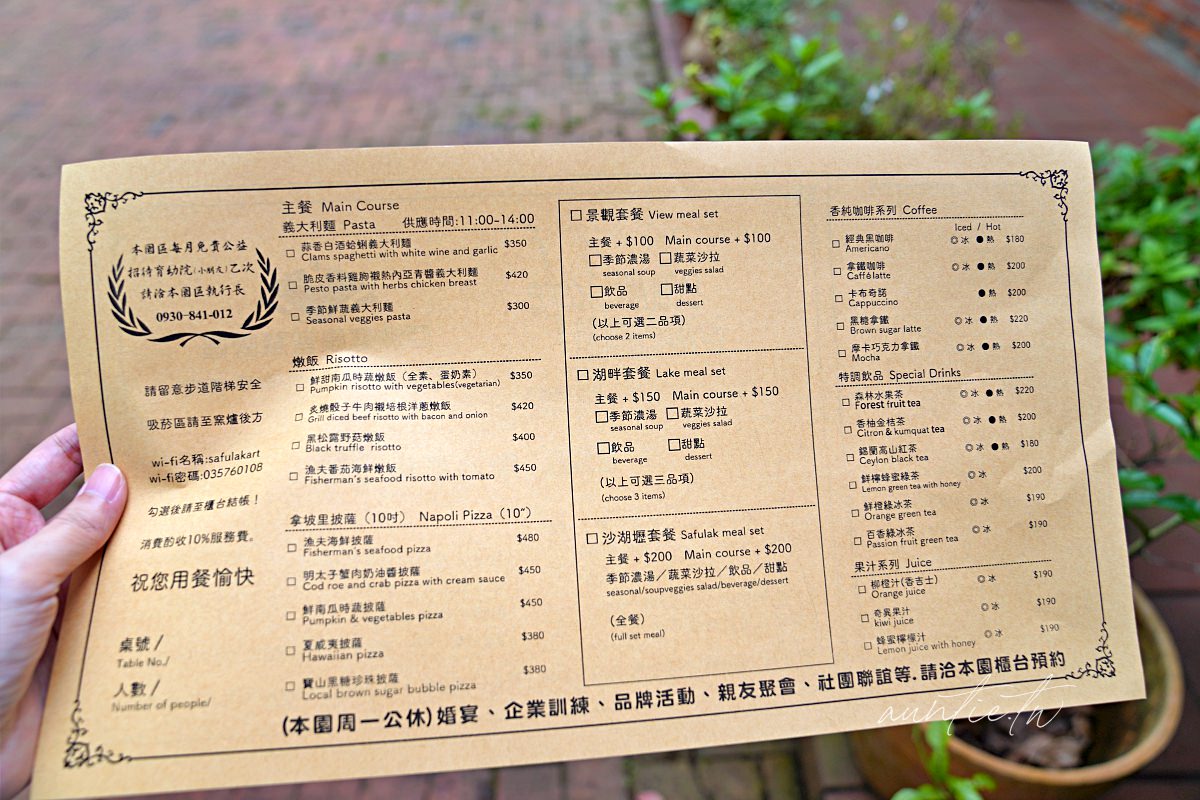 本園區每月免費公益
招待育幼院(小朋友)乙次
請洽本園區執行長
0930-841-012
請留意步道階梯安全
吸菸區請至窯爐後方
wi-fi名稱:safulakart
wi-fi密碼:035760108
勾選後請至櫃台結帳！
消費酌收10%服務費。
祝您用餐愉快
桌號 /
Table No./
人數 /
Number of people/
主餐 Main Course
義大利麵 Pasta 供應時間:11:00-14:00
蒜香白酒蛤蜊義大利麵 $350
Clams spaghetti with white wine and garlic
脆皮香料雞胸襯熱內亞青醬義大利麵 $420
Pesto pasta with herbs chicken breast
季節鮮蔬義大利麵 $300
Seasonal veggies pasta
燉飯 Risotto
鮮甜南瓜時蔬燉飯（全素、蛋奶素） $350
Pumpkin risotto with vegetables(vegetarian)
炙燒骰子牛肉襯培根洋蔥燉飯 $420
Grill diced beef risotto with bacon and onion
黑松露野菇燉飯 $400
Black truffle risotto
漁夫番茄海鮮燉飯 $450
Fisherman's seafood risotto with tomato
拿坡里披薩（10吋） Napoli Pizza（10"）
漁夫海鮮披薩 $480
Fisherman's seafood pizza
明太子蟹肉奶油醬披薩 $450
Cod roe and crab pizza with cream sauce
鮮南瓜時蔬披薩 $450
Pumpkin & vegetables pizza
夏威夷披薩 $380
Hawaiian pizza
寶山黑糖珍珠披薩 $380
Local brown sugar bubble pizza
景觀套餐 View meal set
主餐 + $100 Main course + $100
季節濃湯 蔬菜沙拉
seasonal soup veggies salad
飲品 甜點
beverage dessert
（以上可選二品項）
(choose 2 items)
湖畔套餐 Lake meal set
主餐 + $150 Main course + $150
季節濃湯 蔬菜沙拉
seasonal soup veggies salad
飲品 甜點
beverage dessert
（以上可選三品項）
(choose 3 items)
沙湖壢套餐 Safulak meal set
主餐 + $200 Main course + $200
季節濃湯／蔬菜沙拉／飲品／甜點
seasonal/soupveggies salad/beverage/dessert
（全餐）
(full set meal)
香純咖啡系列 Coffee
Iced / Hot
經典黑咖啡 ◎冰 ●熱 $180
Americano
拿鐵咖啡 ◎冰 ●熱 $200
Caffè latte
卡布奇諾 ●熱 $200
Cappuccino
黑糖拿鐵 ◎冰 ●熱 $220
Brown sugar latte
摩卡巧克力拿鐵 ◎冰 ●熱 $200
Mocha
特調飲品 Special Drinks
森林水果茶 ◎冰 ●熱 $220
Forest fruit tea
香柚金桔茶 ◎冰 ●熱 $200
Citron & kumquat tea
錫蘭高山紅茶 ◎冰 ●熱 $180
Ceylon black tea
鮮檸蜂蜜綠茶 ◎冰 $200
Lemon green tea with honey
鮮橙綠冰茶 ◎冰 $190
Orange green tea
百香綠冰茶 ◎冰 $190
Passion fruit green tea
果汁系列 Juice
柳橙汁(香吉士) ◎冰 $190
Orange juice
奇異果汁 ◎冰 $190
kiwi juice
蜂蜜檸檬汁 ◎冰 $190
Lemon juice with honey
(本園周一公休)婚宴、企業訓練、品牌活動、親友聚會、社團聯誼等.請洽本園櫃台預約
auntie.th